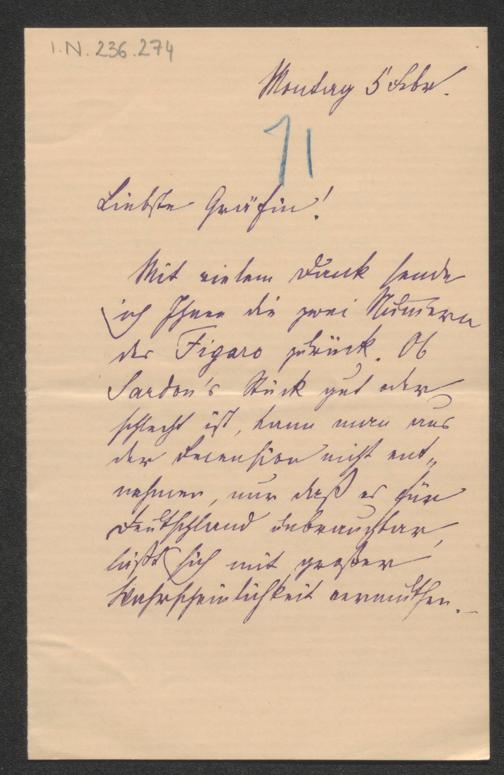 I.N. 236.274
Montag 5 Febr.
71
Liebste Gräfin!
Mit vielem Dank sende
ich Ihnen die zwei Nummern
des Figaro zurück. Ob
Sardou's Stück gut oder
schlecht ist, kann man aus
der Recension nicht ent„
nehmen, nur daß es für
Deutschland unbrauchbar,
läßt sich mit großer
Wahrscheinlichkeit vermuthen. –